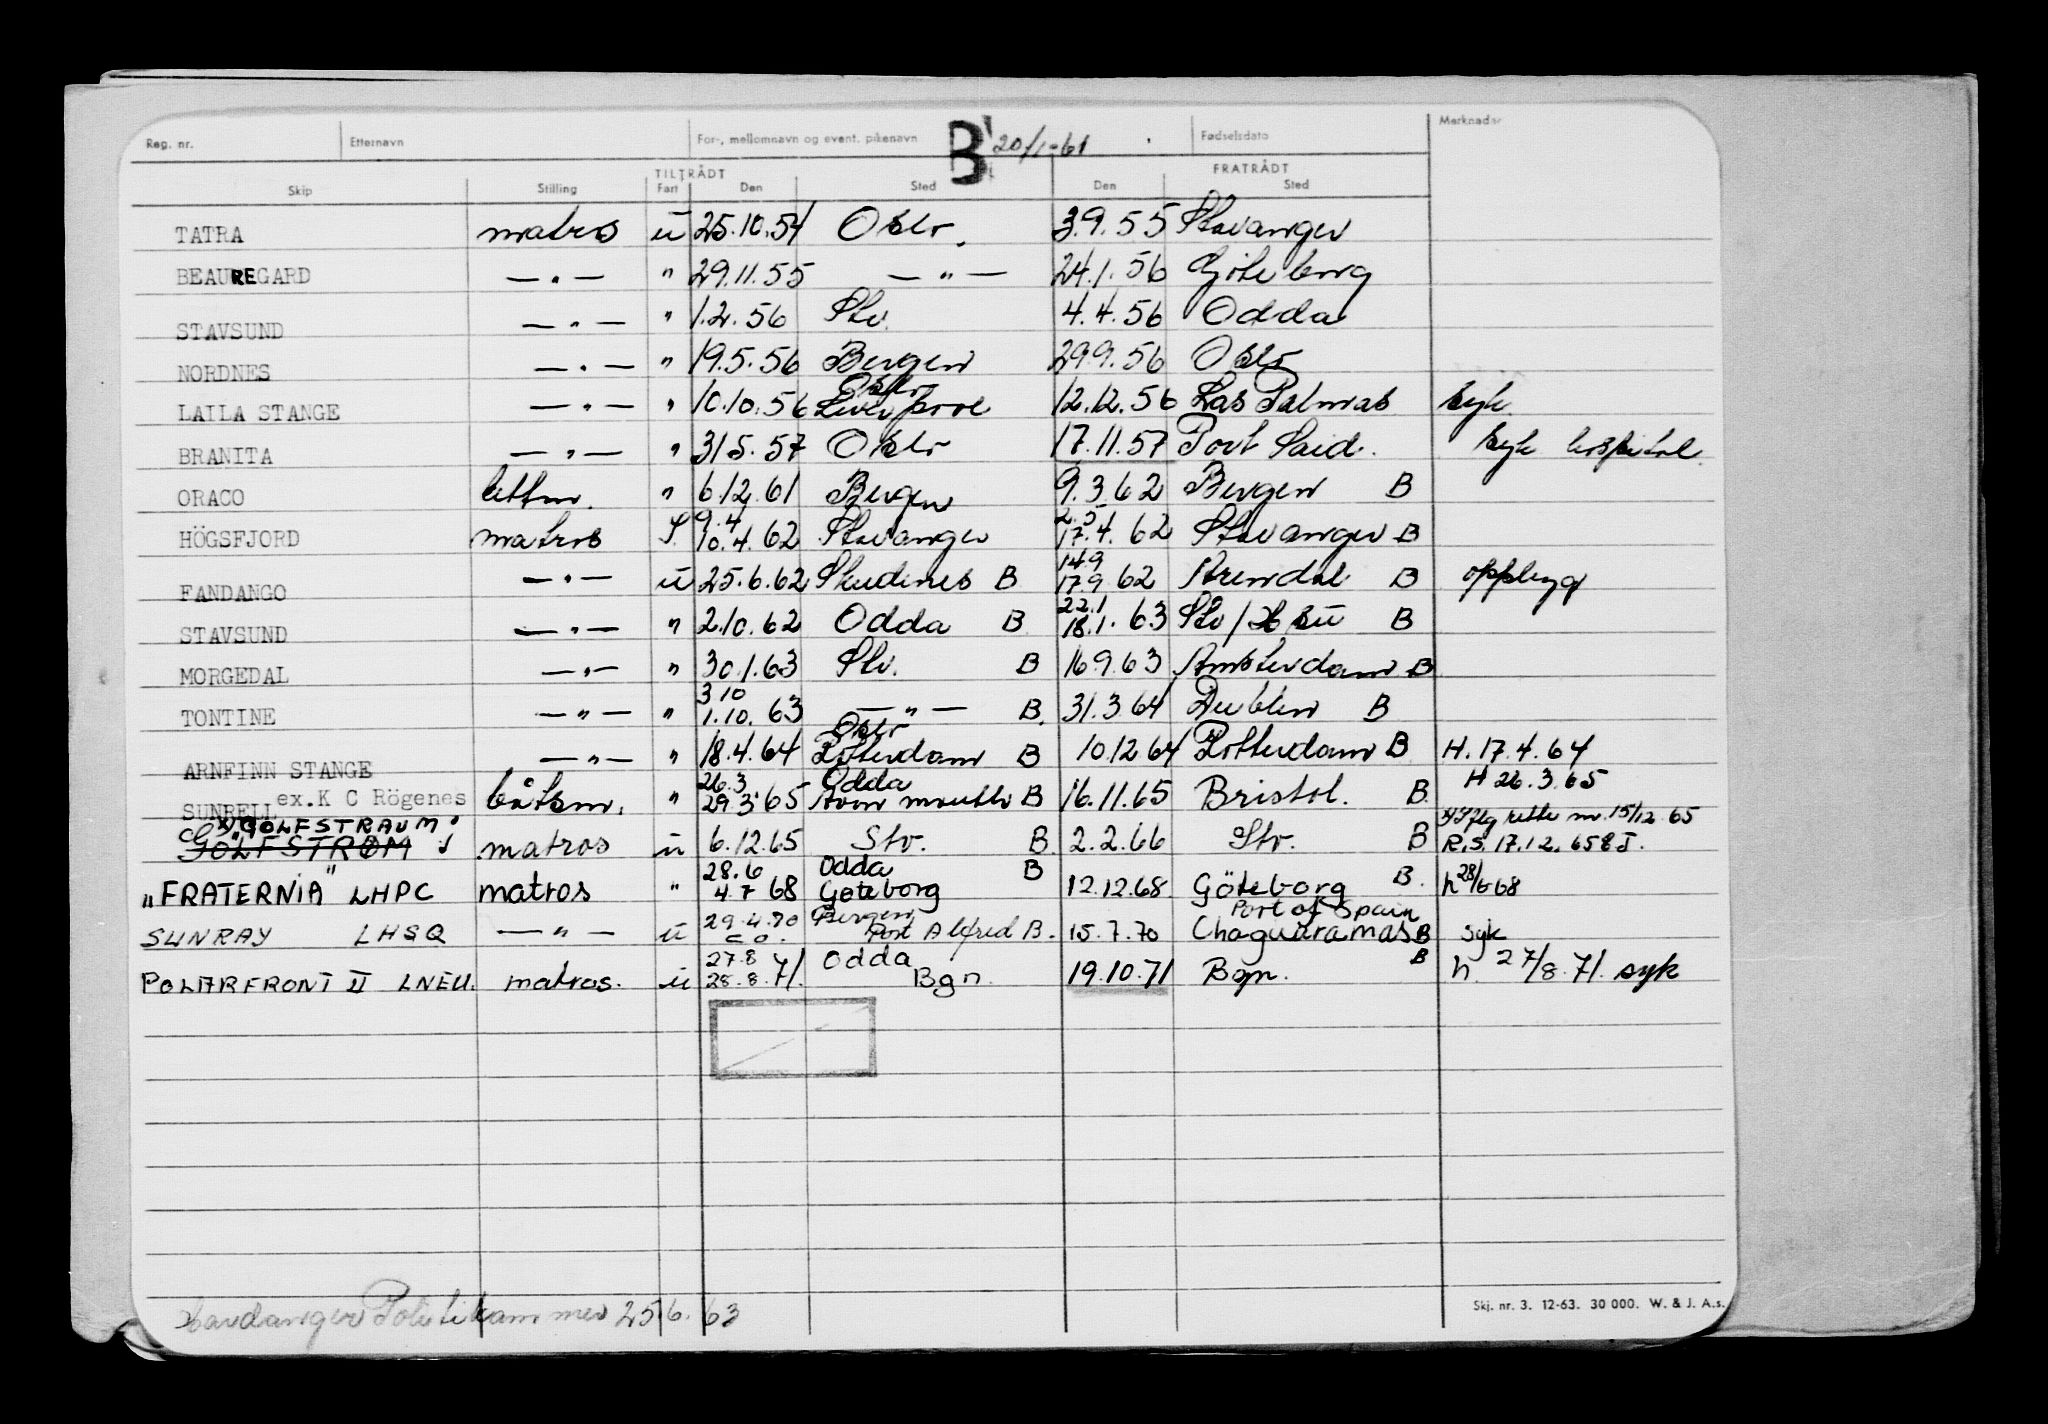 Reg. nr. Etternavn For-, mellomnavn og event. pikenavn B 20/1-61 Fødselsdato Merknader
TILTRÅDT FRATRÅDT
Skip Stilling Fart Den Sted Den Sted
TATRA matros u 25.10.54 Oslo. 3.9.55 Stavanger
BEAUREGARD — " — " 29.11.55 — " — 24.1.56 Göteborg
STAVSUND — " — " 1.2.56 Stv. 4.4.56 Odda
NORDNES — " — " 19.5.56 Bergen 29.9.56 Oslo
Oslo
LAILA STANGE — " — " 10.10.56 Liverpool 12.12.56 Las Palmas syk.
BRANITA — " — " 31.5.57 Oslo 17.11.57 Port Said. syk hospital.
ORACO lettm. " 6.12.61 Bergen 9.3.62 Bergen B
9.4 2.5
HÖGSFJORD matros 10.4.62 Stavanger 17.4.62 Stavanger B
14.9
FANDANGO — " — u 25.6.62 Skudenes B 17.9.62 Arendal B opplegg
22.1
STAVSUND — " — " 2.10.62 Odda B 18.1.63 Stv / B
MORGEDAL — " — " 30.1.63 Stv. B 16.9.63 Amsterdam B
3.10
TONTINE — " — " 1.10.63 — " — B. 31.3.64 Dublin B
Oslo
ARNFINN STANGE — " — " 18.4.64 Rotterdam B 10.12.64 Rotterdam B H. 17.4.64
26.3 Odda H 26.3.65
SUNRELL ex.K C Rögenes båtsm. " 29.3.65 Avonmouth B 16.11.65 Bristol. B.
"GOLFSTRAUM" 15/12.65
GOLFSTRØM matros u 6.12.65 Stv. B. 2.2.66 Stv. B R.S. 17.12.65
28.6 Odda B
"FRATERNIA" LHPC matros " 4.7 68 Göteborg 12.12.68. Göteborg B. h 28/6 68
29.4.70 Bergen Port of Spain
SUNRAY LHSQ — " — u c o. Port Alfred B. 15.7.70 Chaguaramas B syk
27.8 Odda B
POLARFRONT II LNEU. matros. u 28.8.71. Bgn. 19.10.71 Bgn. h. 27/8.71. syk
Hardanger Politikammer 25.6.63
Skj. nr. 3. 12-63. 30 000. W. & J. A.s.